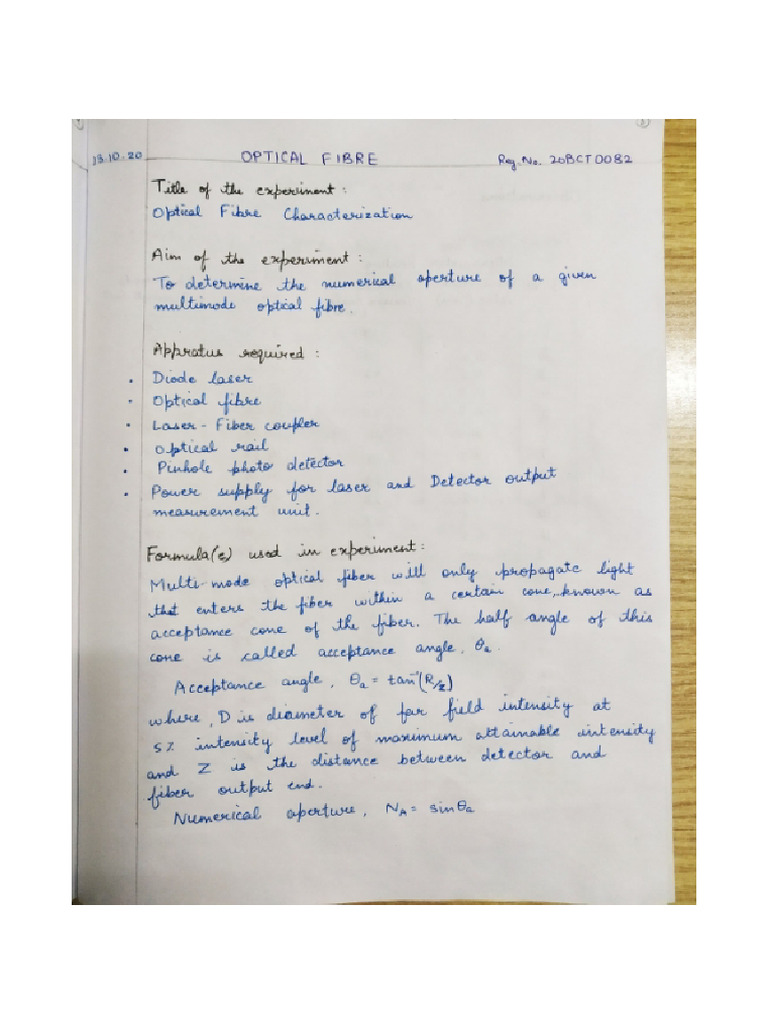 13.10.20 OPTICAL FIBRE Reg. No. 20BCT0082
Title of the experiment :
Optical Fibre Characterization
Aim of the experiment :
To determine the numerical aperture of a given
multimode optical fibre.
Appratus required :
• Diode laser
• Optical fibre
• Laser-Fiber coupler
• Optical rail
• Pinhole photo detector
• Power supply for laser and Detector output
measurement unit.
Formula(e) used in experiment :
Multi-mode optical fiber will only propagate light
that enters the fiber within a certain cone, known as
acceptance cone of the fiber. The half angle of this
cone is called acceptance angle, θa.
Acceptance angle, θa = tan⁻¹(R/z)
where, D is diameter of far field intensity at
5% intensity level of maximum attainable intensity
and Z is the distance between detector and
fiber output end.
Numerical aperture, NA = sinθa